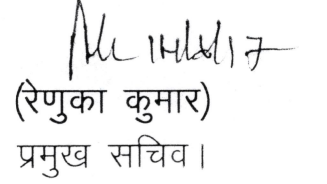 (रेणुका कुमार)
प्रमुख सचिव।